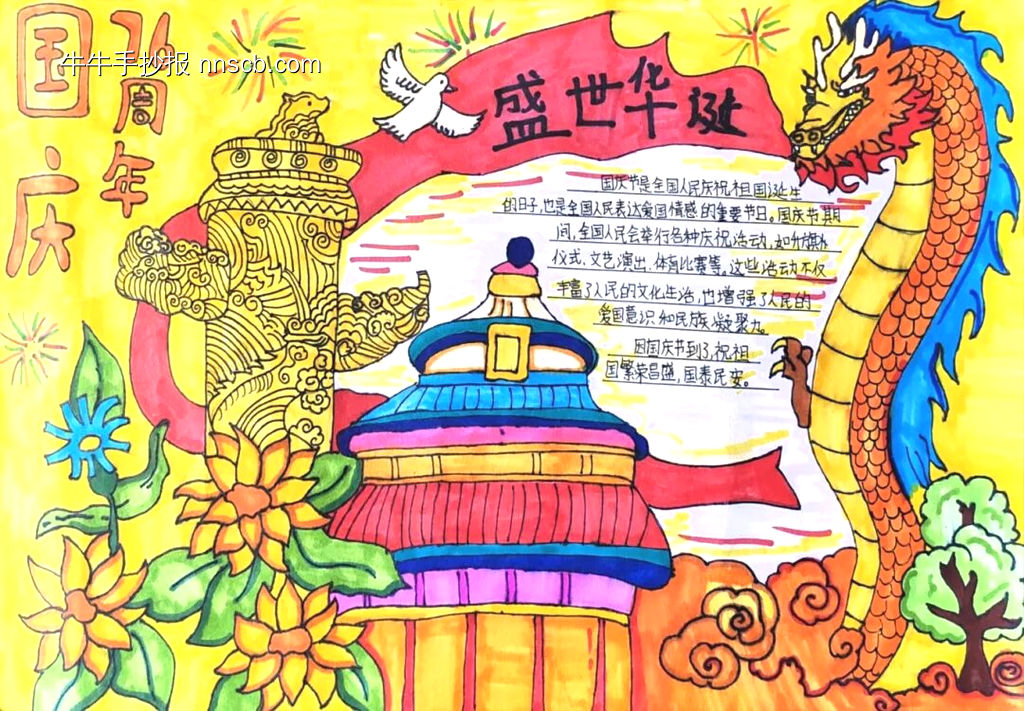 国庆
周年
牛牛手抄报 nnscb.com
盛世华诞
国庆节是全国人民庆祝祖国诞生
的日子,也是全国人民表达爱国情感的重要节日。国庆节期
间,全国人民会举行各种庆祝活动,如升旗
仪式、文艺演出、体育比赛等。这些活动不仅
丰富了人民的文化生活,也增强了人民的
爱国意识和民族凝聚力。
因国庆节到了,祝祖
国繁荣昌盛,国泰民安。